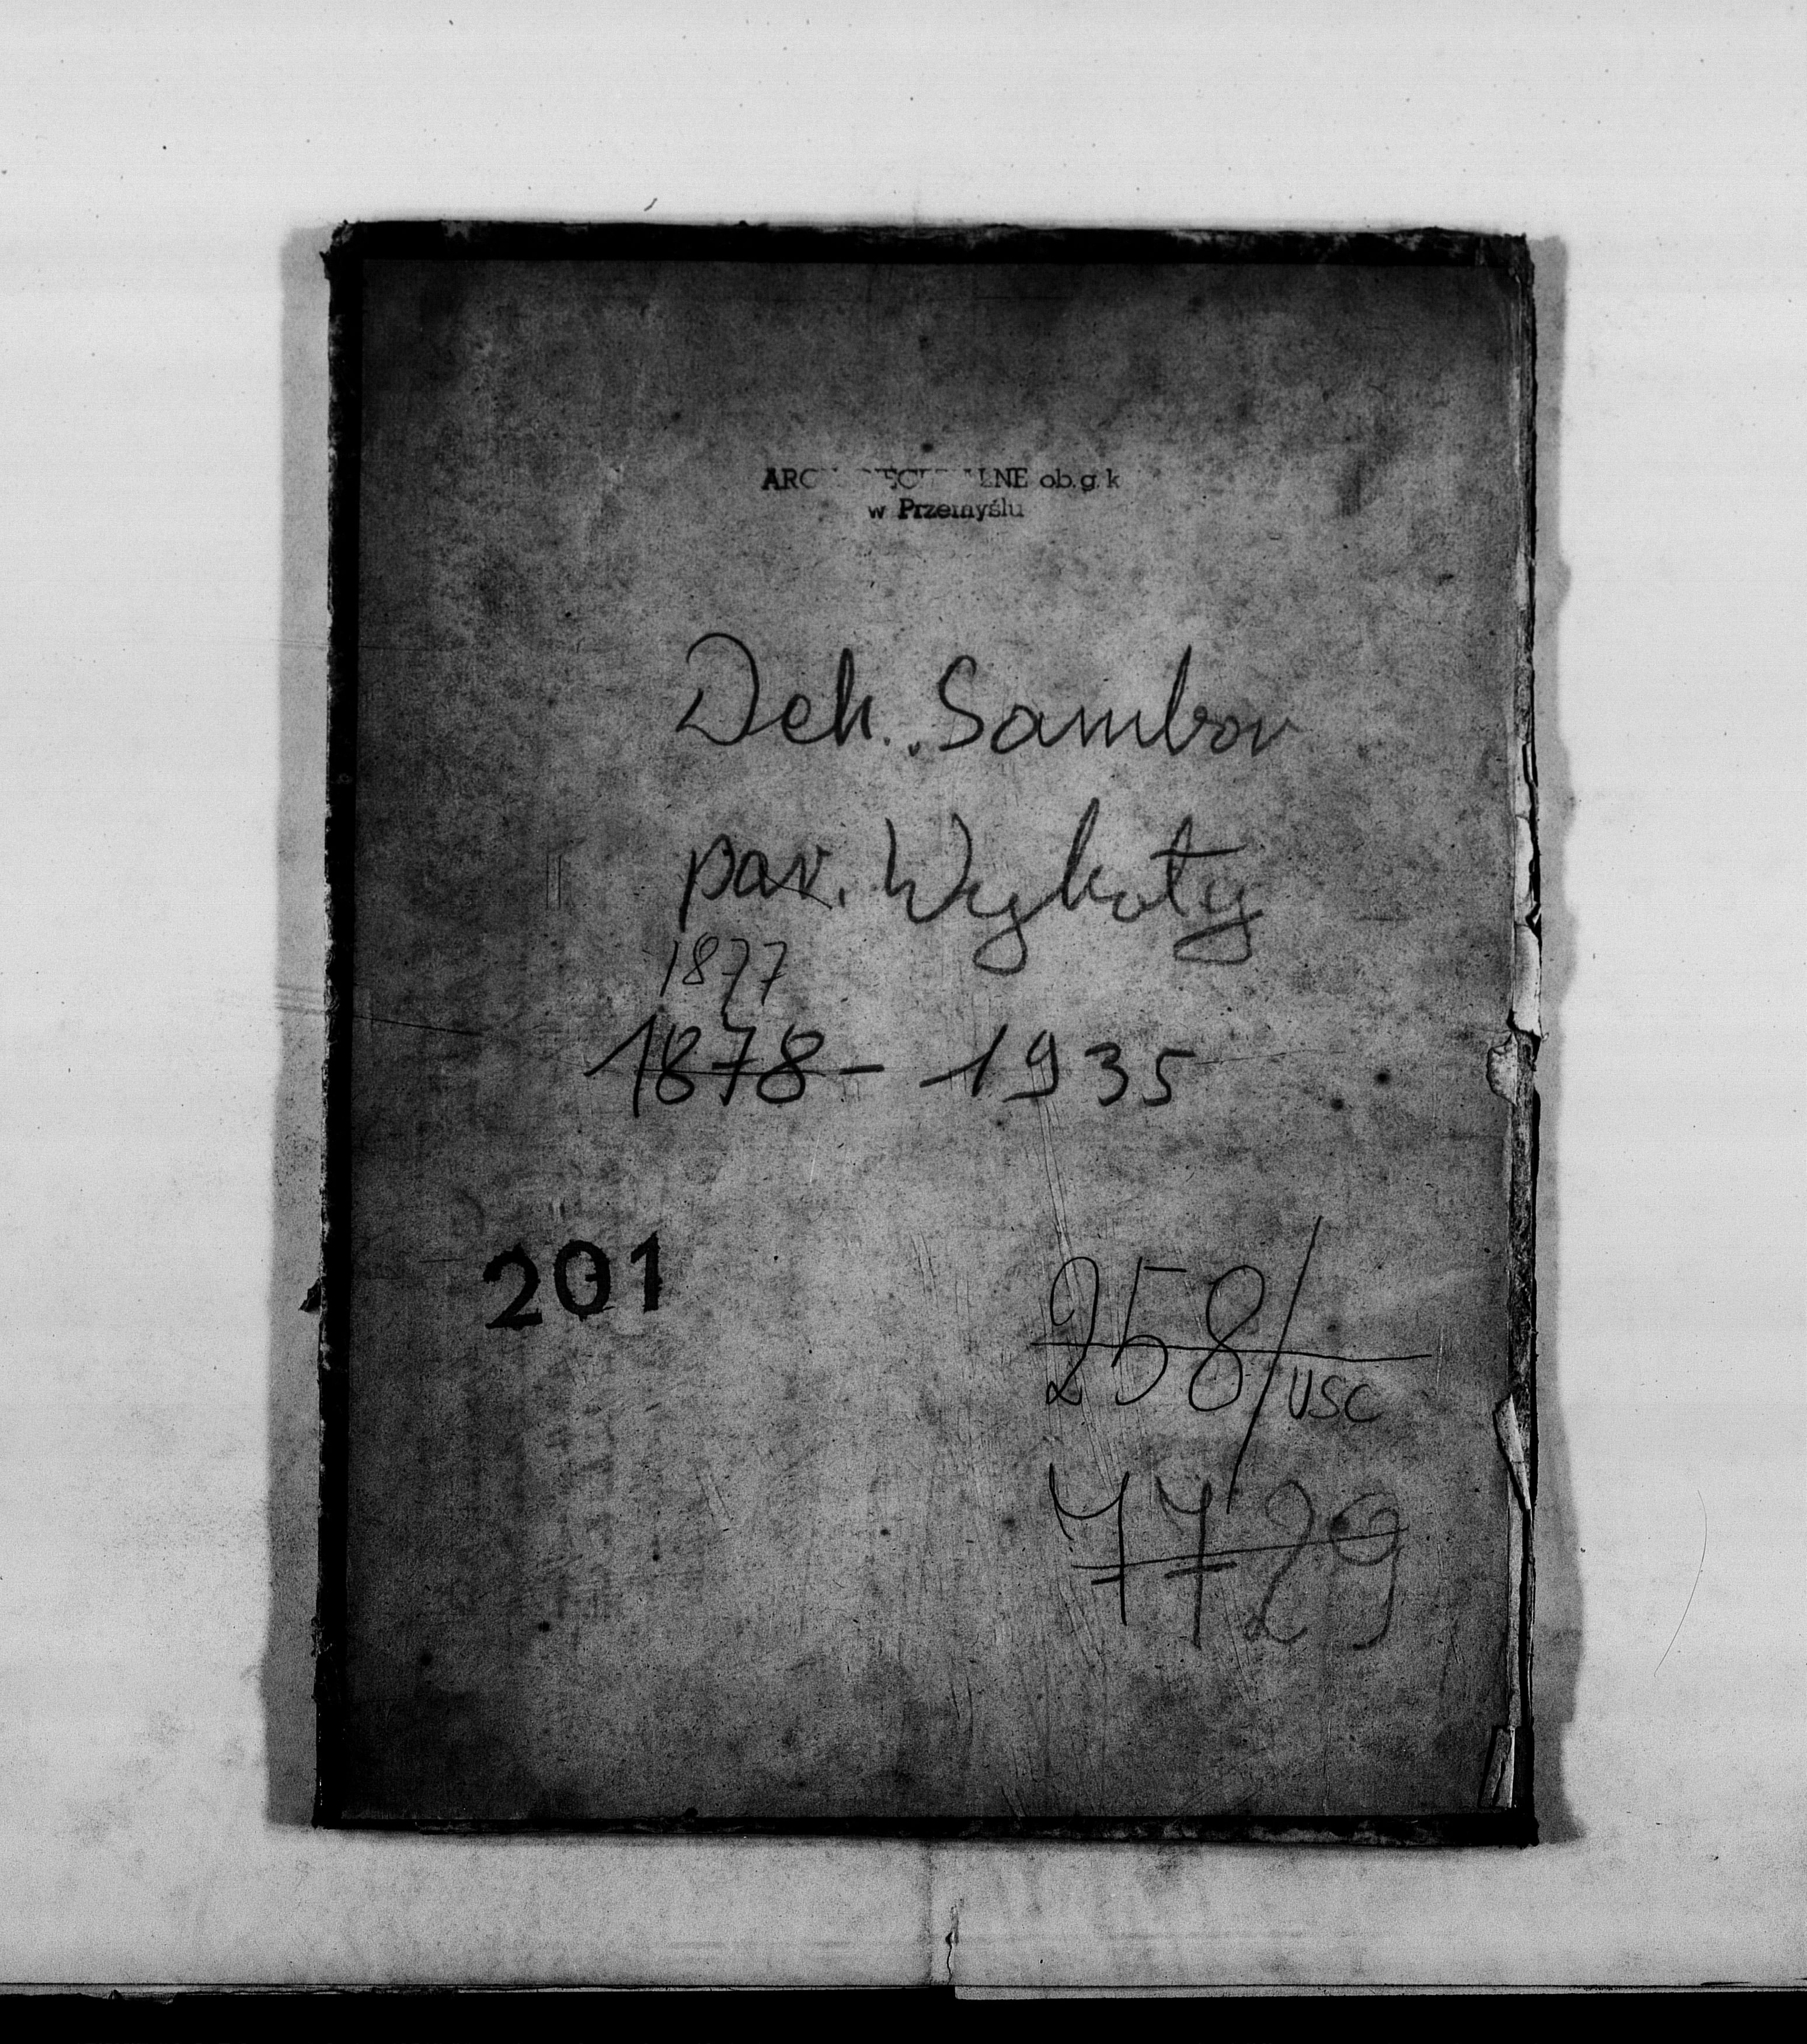 ob. g. k
w Przemyślu
Dek. Sambor
par. Wykoty
1877
1878 - 1935
201
258/USC
7729